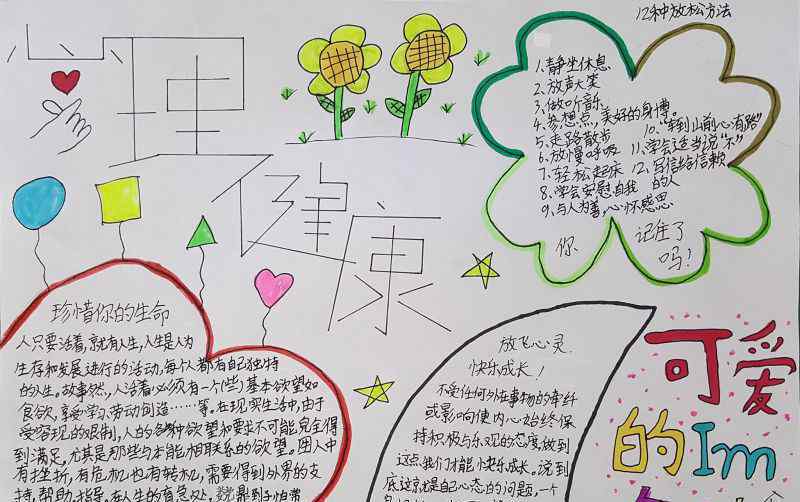 心理
健康
12种放松方法
1、静坐休息
2、放声大笑
3、做听音乐
4、多想点,美好的事情。
5、走路散步
6、放慢呼吸
7、轻松起床
8、学会安慰自我
9、与人为善,心怀感恩
10、"车到山前必有路"
11、学会适当说"不"
12、写信给信赖
的人
你 记住了
吗?
珍惜你的生命
人只要活着,就有人生,人生是人为
生存和发展进行的活动,每个人都有自己独特
的人生。故事然,人活着必须有一个(些)基本欲望如
食欲,享受学习,劳动创造……等。在现实生活中,由于
受客现的限制,人的各种欲望和要求不可能完全得
到满足,尤其是那些与本能相联系的欲望。因人中
有挫折,有危机也有转机,需要得到外界的支
持,帮助,指导。在人生的
放飞心灵,
快乐成长!
不受任何外在事物的牵纤
或影响使内心始终保
持积极与乐观的态度,做到
这点我们才能快乐成长。说到
底这就是自己心态的问题,一个
可爱
的Im